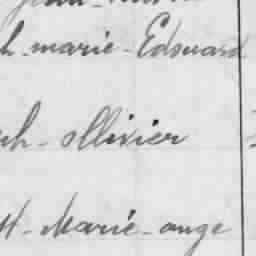 h - marie - Edouard
ph - ollivier
H - Marie - ange